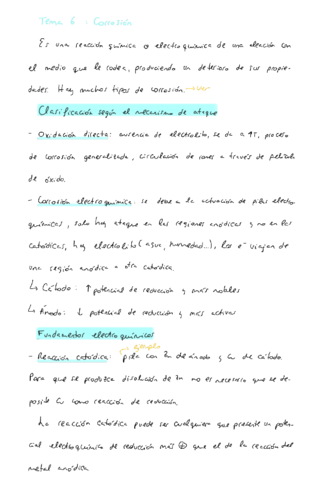 Tema 6 : Corrosión
Es una reacción química o electroquímica de una aleación con
el medio que le rodea, produciendo un deterioro de sus propie-
dades. Hay muchos tipos de corrosión.
Clasificación según el mecanismo de ataque
- Oxidación directa: ausencia de electrolito, se da a ↑T, proceso
de corrosión generalizada, circulación de iones a través de película
de óxido.
- Corrosión electroquímica: se debe a la actuación de pilas electro-
químicas, solo hay ataque en las regiones anódicas y no en las
catódicas, hay electrolito (agua, humedad...), los e⁻ viajan de
una región anódica a otra catódica.
↳ Cátodo: ↑ potencial de reducción y más nobles
↳ Ánodo: ↓ potencial de reducción y más activas
Fundamentos electroquímicos
ejemplo
- Reacción catódica: pila con Zn de ánodo y Cu de cátodo.
Para que se produzca disolución de Zn no es necesario que se de-
posite Cu como reacción de reducción.
La reacción catódica puede ser cualquiera que presente un poten-
cial electroquímico de reducción más ⊕ que el de la reacción del
metal anódico.